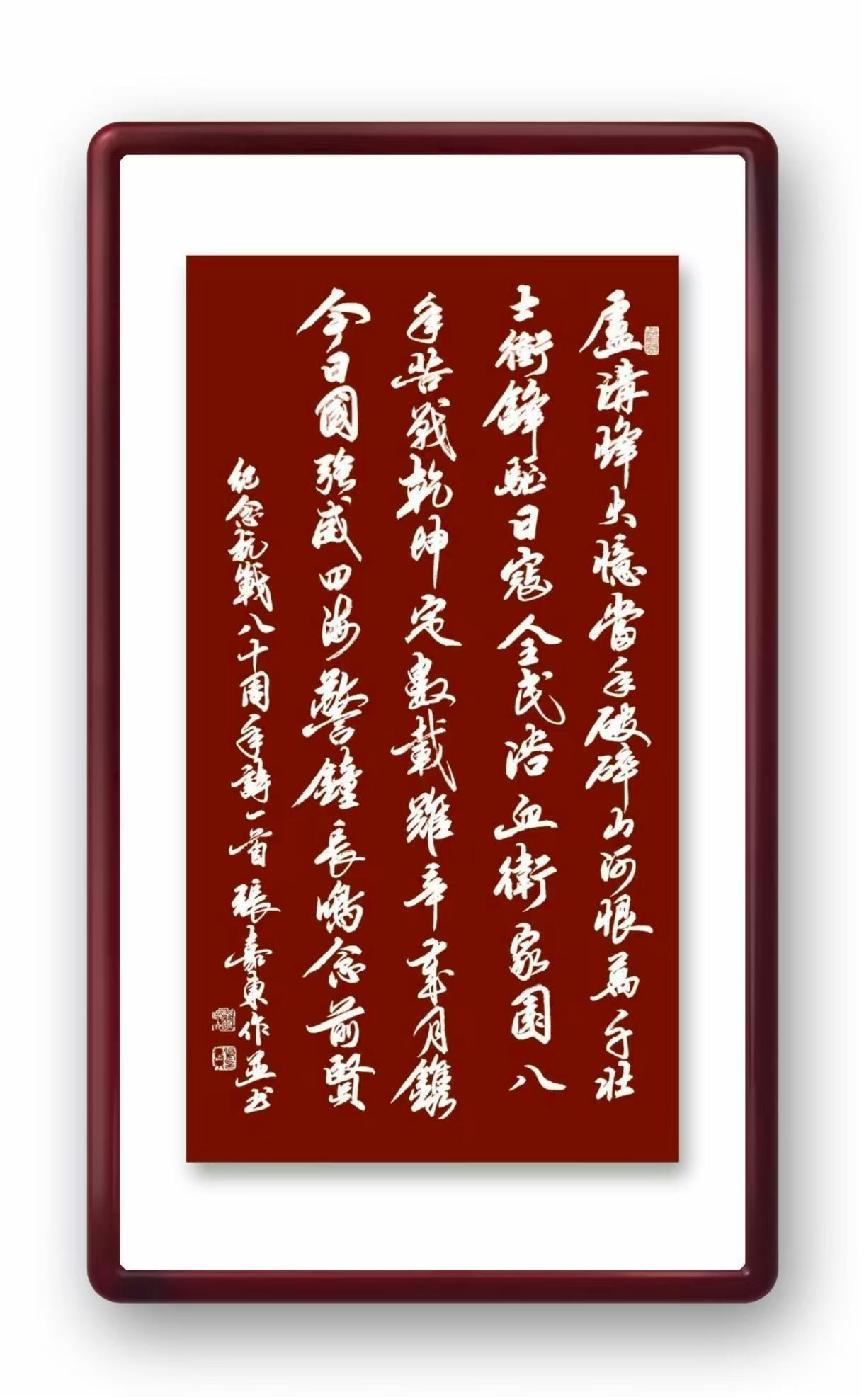 盧溝烽火憶當年破碎山河恨萬千壯
士衝鋒驅日寇全民浴血衛家園八
年苦戰乾坤定數載艱辛歲月鐫
今日國強威四海警鐘長鳴念前賢
紀念抗戰八十周年詩一首 張嘉東作並书